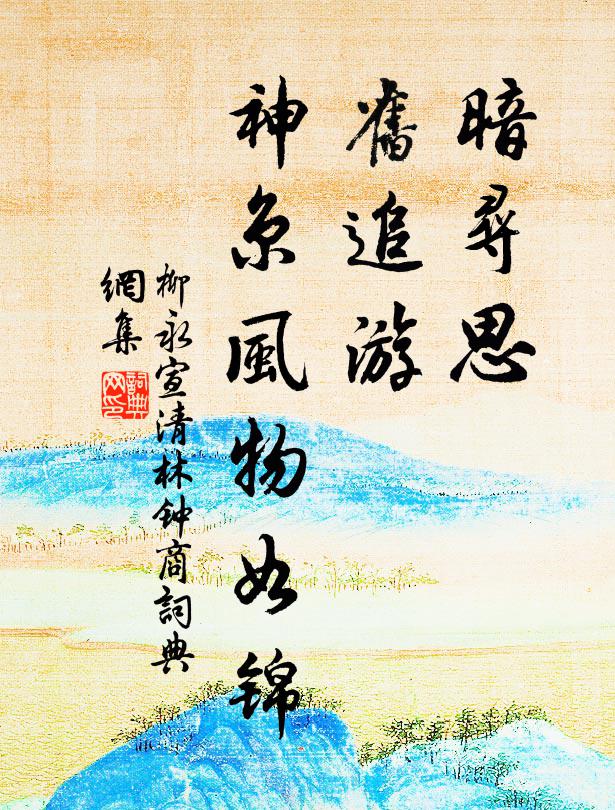 暗尋思
舊追游
神京風物如锦
柳永宣清林钟商詞典
網集
詞典
网印